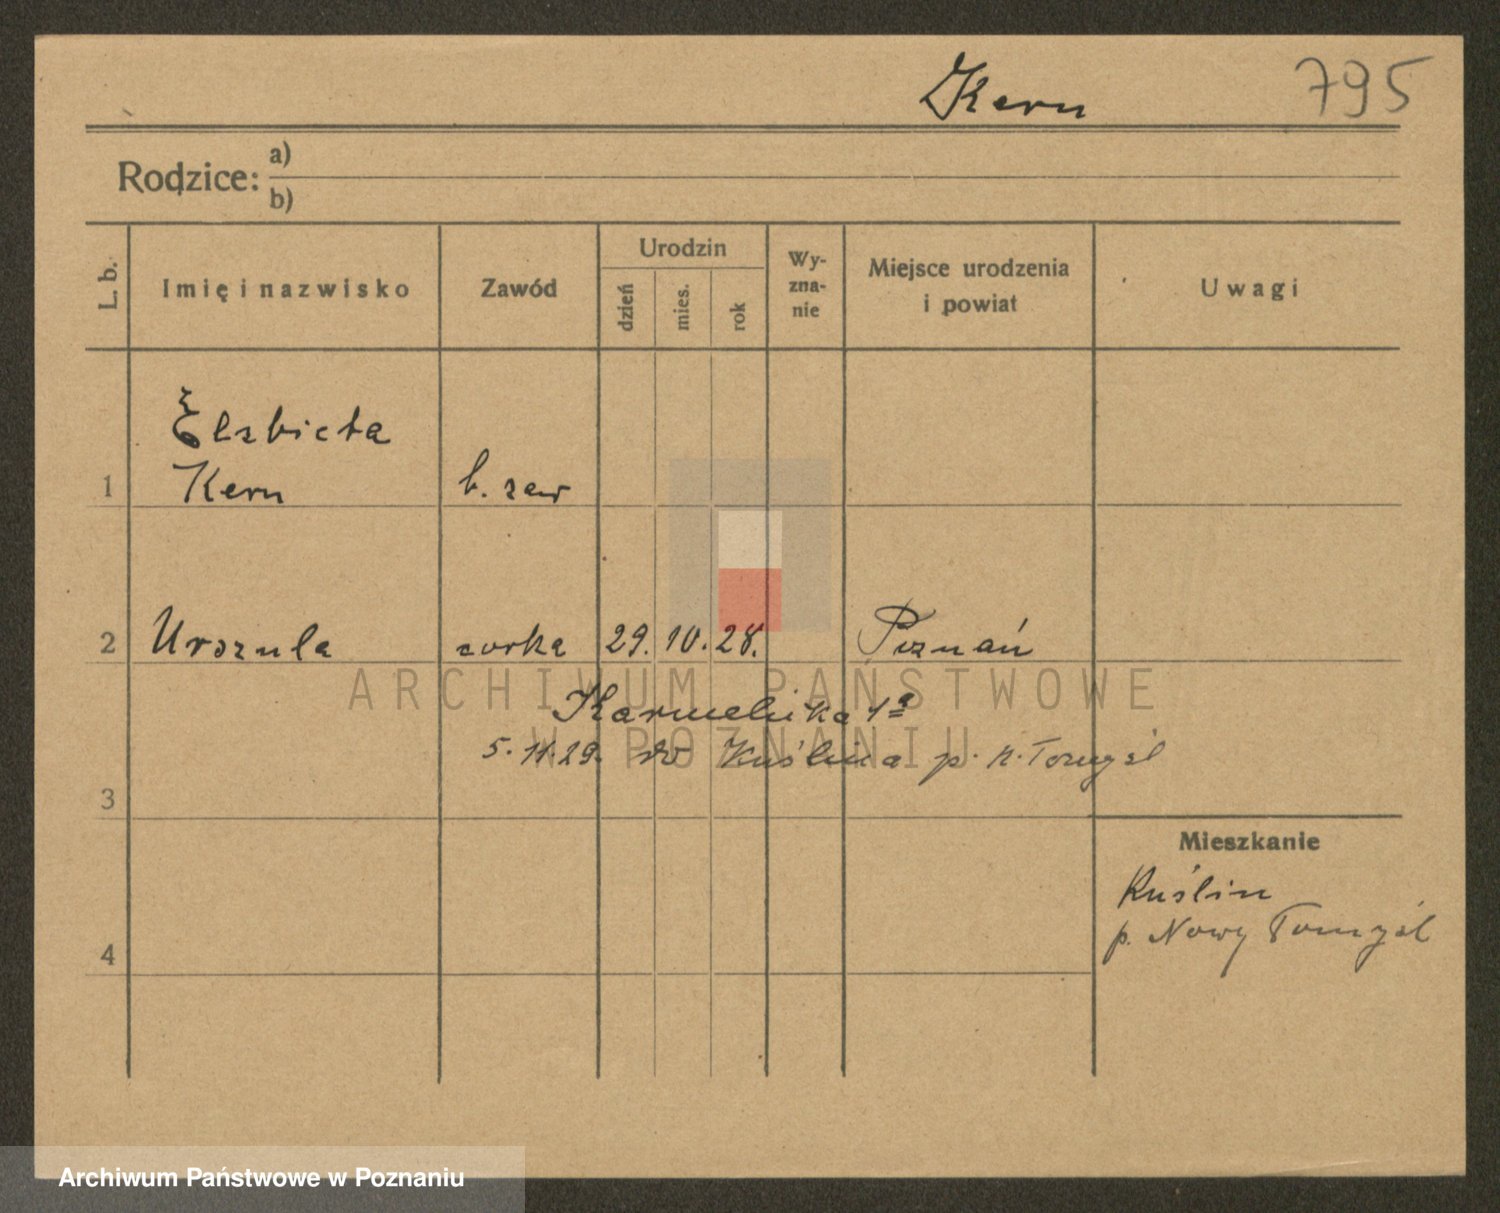 Kern 795
Rodzice: a)
b)
L. b.
Imię i nazwisko
Zawód
Urodzin
dzień
mies.
rok
Wy-
zna-
nie
Miejsce urodzenia
i powiat
Uwagi
Elzbieta
1 Kern b. zaw
2 Urszula corka 29. 10. 28. Poznań
ARCHIWUM PAŃSTWOWE
W POZNANIU
Karmelicka 1a
5. 11. 29. do Kuślina p. N. Tomyśl
3
Mieszkanie
Kuślin
p. Nowy Tomyśl
4
Archiwum Państwowe w Poznaniu